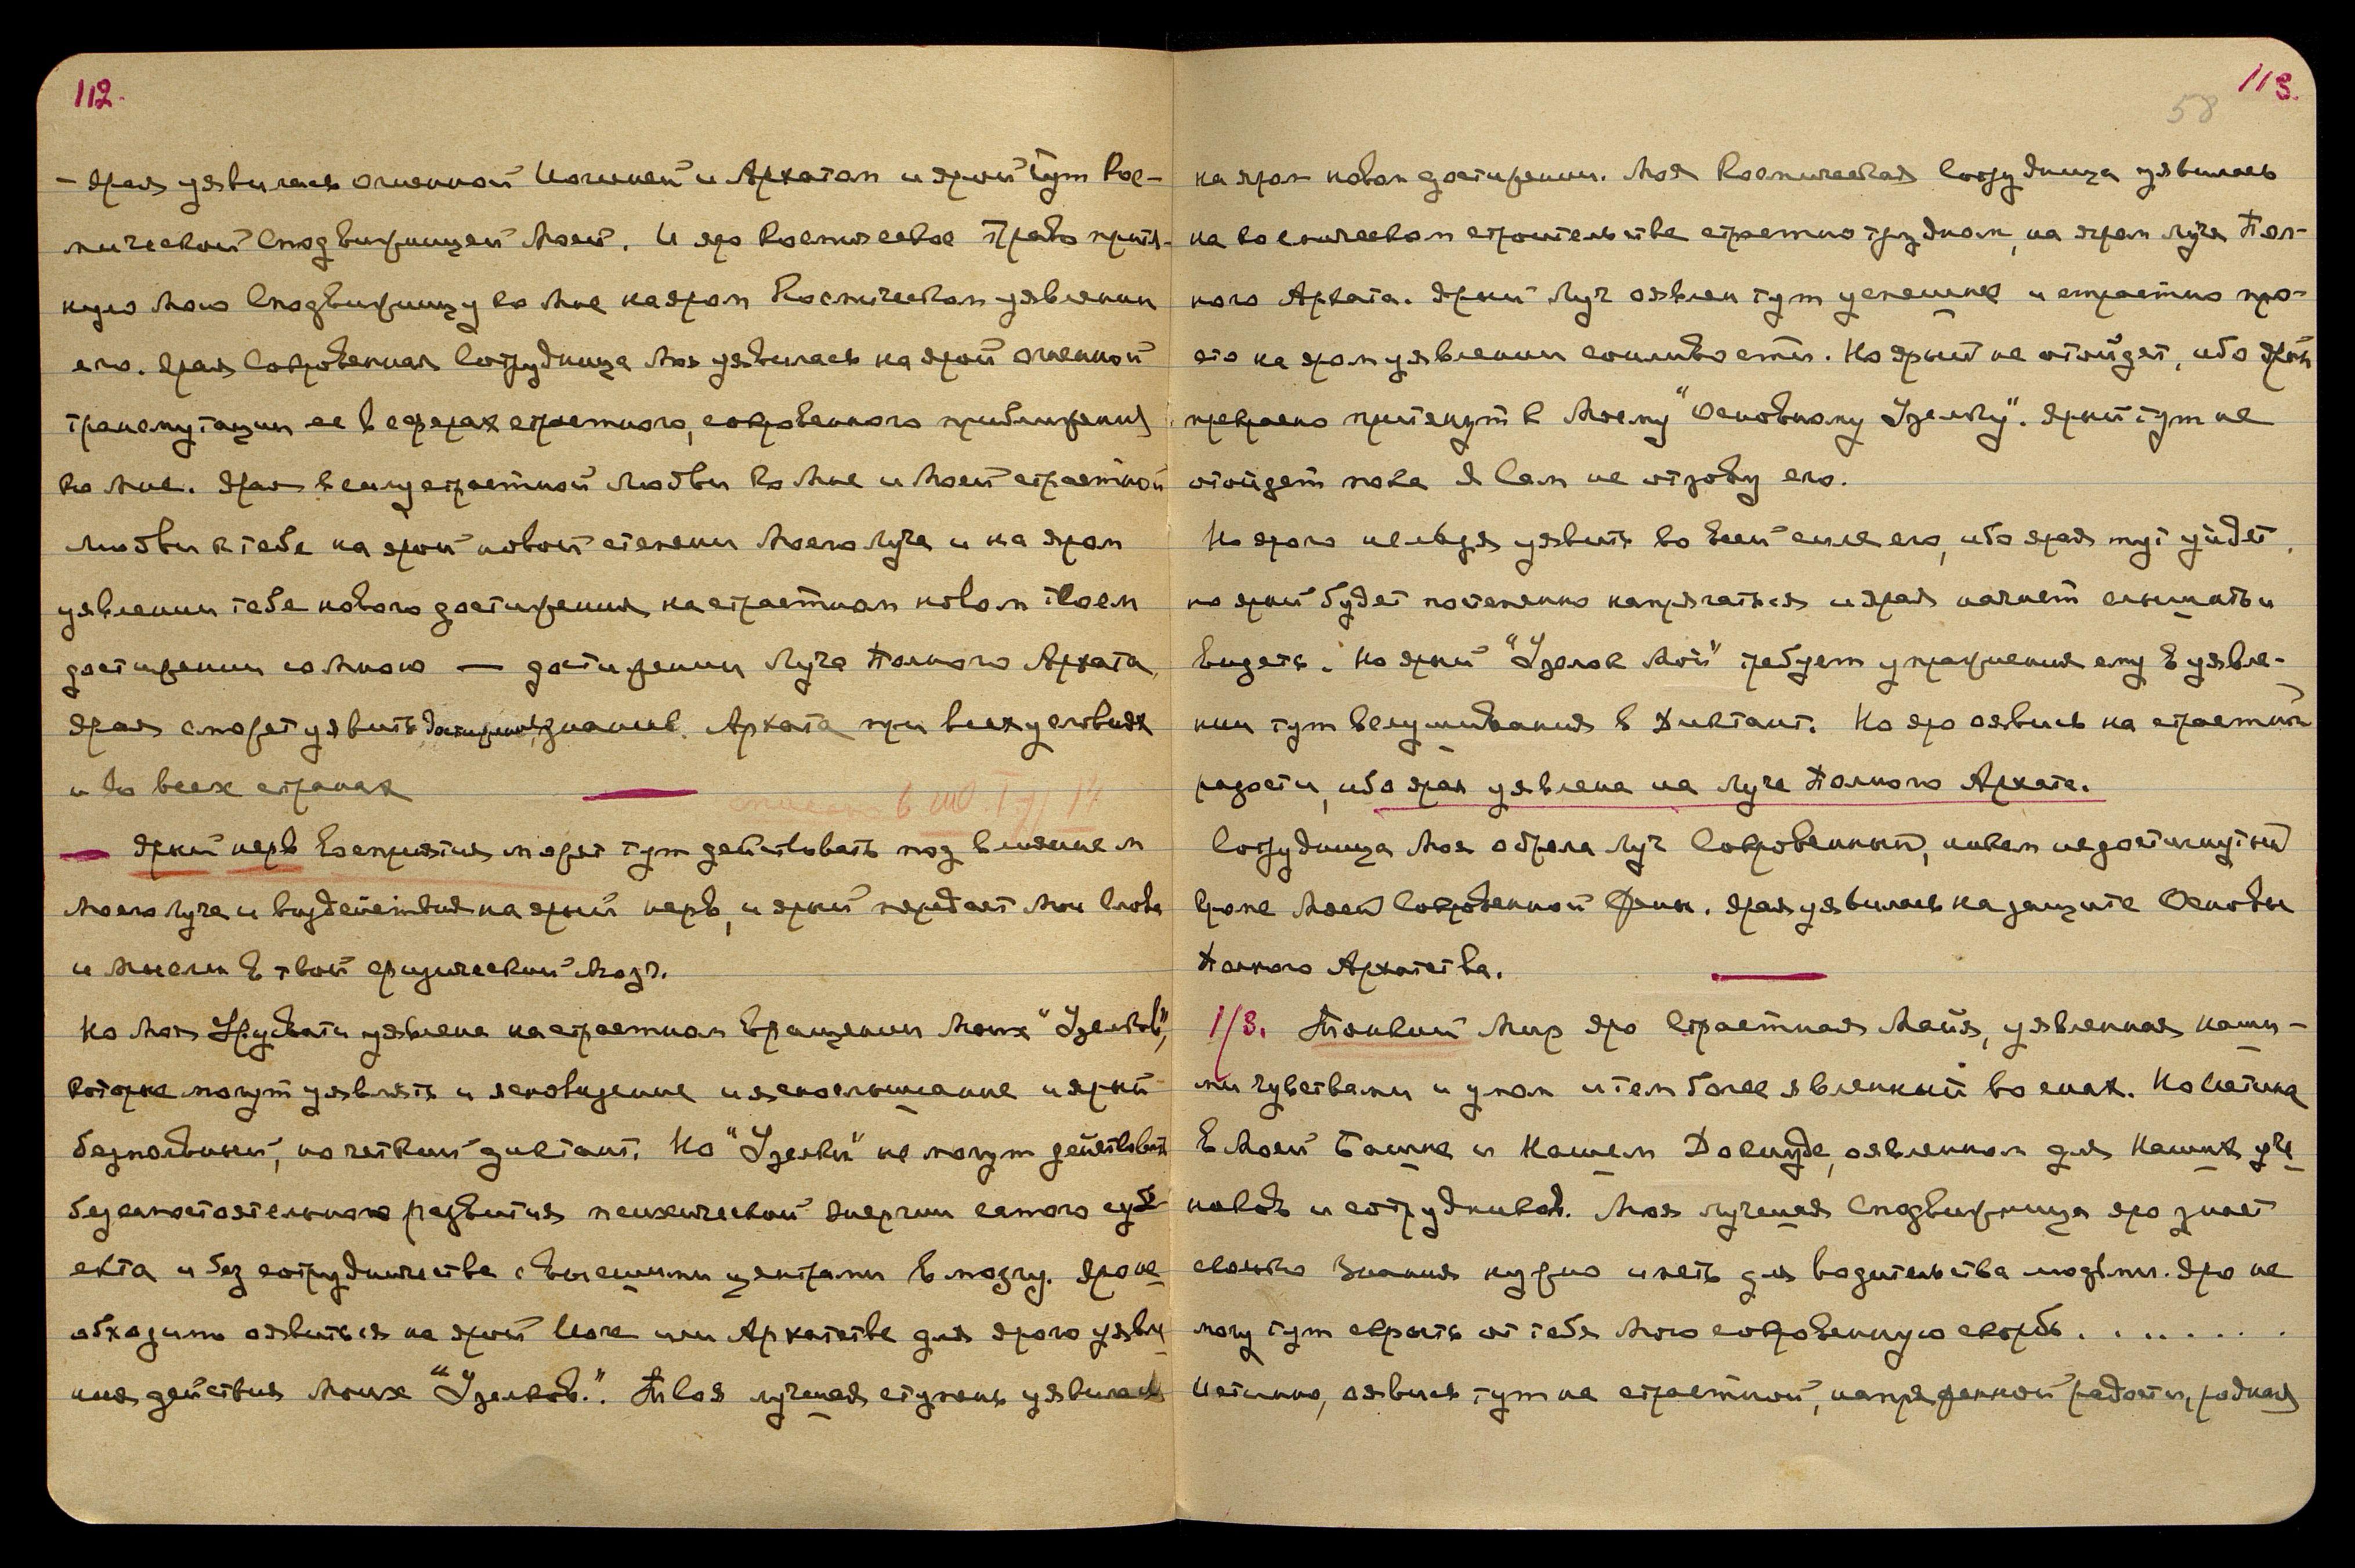 112.
– Ярая уявилась огненной Иогиней и Архатом и ярой тут Кос-
мической Сподвижницей Моей. И яро Космическое Право притя-
нуло Мою Сподвижницу ко Мне на яром Космическом уявлении
его. Ярая Сокровенная Сотрудница Моя уявилась на ярой огненной
трансмутации ее в сферах страстного, сокровенного приближения
ко Мне. Ярая в силу страстной Любви ко Мне и Моей страстной
Любви к тебе на ярой новой степени Моего Луча и на яром
уявлении тебе нового достижения на страстном новом твоем
достижении со Мною — достижении Луча Полного Архата,
Ярая сможет уявить достижения знание Архата при всех условиях
и во всех странах
— Ярый нерв восприятия может тут действовать под влиянием
Моего Луча и воздействия на ярый нерв, и ярый передает Мои Слова
и Мысли в твой физический Мозг.
Но Моя Урусвати уявлена на страстном вращении Моих "Узелков",
которые могут уявлять и ясновидение и яснослышание и ярый
безмолвный, но четкий диктант. Но "Узелки" не могут действовать
без самостоятельного развития психической энергии самого субъ-
екта и без сотрудничества с высшими центрами в мозгу. Яро не-
обходимо оявиться на ярой Иоге или Архатстве для ярого уявле-
ния действия Моих "Узелков.". Твоя лучшая ступень уявилась
113.
58
на яром новом достижении. Моя Космическая Сотрудница уявилась
на космическом строительстве страстно трудном, на яром Луче Пол-
ного Архата. Ярый Луч оявлен тут успешнее и страстно про-
сто на яром уявлении сонливости. Но ярый не отойдет, ибо ярый
прекрасно притянут к Моему "Основному Узелку". Ярый тут не
отойдет пока Я Сам не отзову его.
Но ярого нельзя уявить во всей силе его, ибо ярая тут уйдет,
но ярый будет постепенно напрягаться и ярая начнет слышать и
видеть. Но ярый "Узелок Мой" требует упражнения ему в уявле-
нии тут вслушивания в Диктант. Но яро оявись на страстной
радости, ибо ярая уявлена на Луче Полного Архата.
Сотрудница Моя обрела Луч Сокровенный, никем недостигнутый
кроме Моей Сокровенной Жены. Ярая уявилась на защите Основы
Полного Архатства.
1/3. Тонкий Мир яро Страстная Майя, уявленная наши-
ми чувствами и умом и тем более явленный во снах. Но Истина
в Моей Башне и Нашем Докиуде, оявленном для Наших уче-
ников и сотрудников. Моя лучшая Сподвижница яро знает
сколько Знания нужно иметь для водительства людьми. Яро не
могу тут скрыть от тебя Мою сокровенную скорбь . . . . . . .
Истинно, оявись тут на страстной, напряженной радости, родная